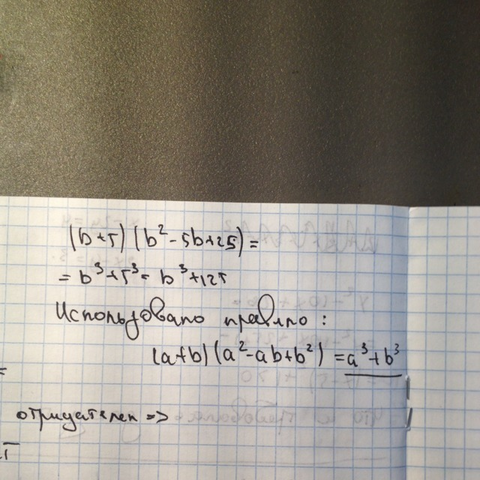 (b+5)(b²-5b+25)=
=b³+5³=b³+125
Использовано правило:
(a+b)(a²-ab+b²)=a³+b³
отрицателен =>